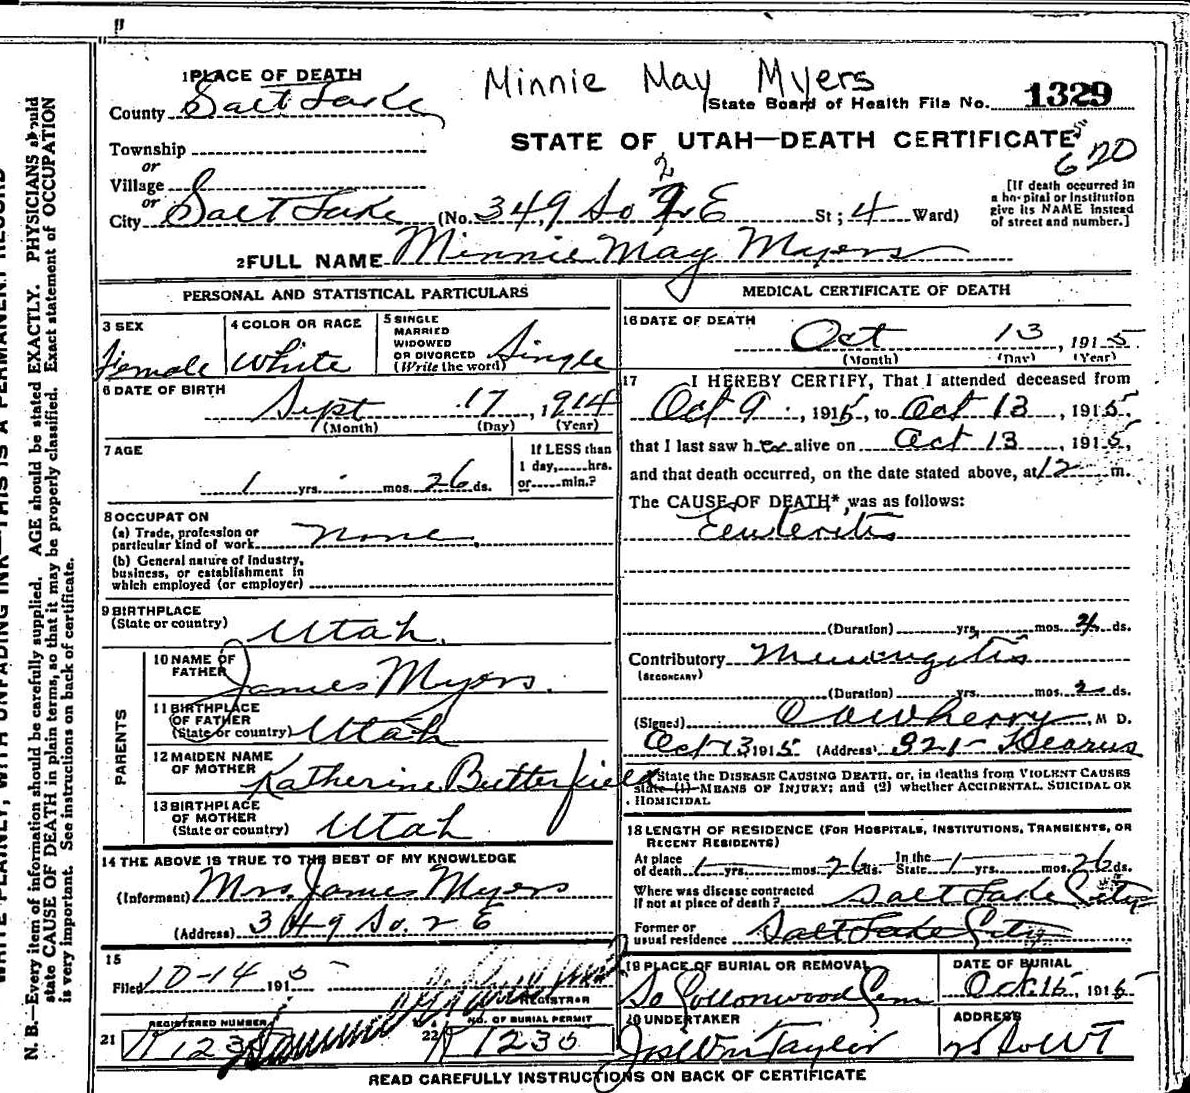 Minnie May Myers
1 PLACE OF DEATH
County Salt Lake
State Board of Health File No. 1329
STATE OF UTAH—DEATH CERTIFICATE
Township
or
Village
or
City Salt Lake (No. 349 So 2 E St; 4 Ward)
620
[If death occurred in
a hospital or institution
give its NAME instead
of street and number.]
2 FULL NAME Minnie May Myers
PERSONAL AND STATISTICAL PARTICULARS
3 SEX
Female
4 COLOR OR RACE
White
5 SINGLE
MARRIED
WIDOWED
OR DIVORCED
(Write the word) Single
6 DATE OF BIRTH
Sept 17, 1914
(Month) (Day) (Year)
7 AGE
1 yrs. - mos. 26 ds.
If LESS than
1 day,......hrs.
or......min.?
8 OCCUPATION
(a) Trade, profession or
particular kind of work none
(b) General nature of industry,
business, or establishment in
which employed (or employer)
9 BIRTHPLACE
(State or country) Utah.
PARENTS
10 NAME OF
FATHER James Myers.
11 BIRTHPLACE
OF FATHER
(State or country) Utah
12 MAIDEN NAME
OF MOTHER Katherine Butterfield
13 BIRTHPLACE
OF MOTHER
(State or country) Utah
14 THE ABOVE IS TRUE TO THE BEST OF MY KNOWLEDGE
(Informant) Mrs. James Myers
(Address) 349 So. 2 E
15
Filed 10-14 1915
REGISTRAR
21 REGISTERED NUMBER
22 NO. OF BURIAL PERMIT
MEDICAL CERTIFICATE OF DEATH
16 DATE OF DEATH
Oct 13, 1915
(Month) (Day) (Year)
17 I HEREBY CERTIFY, That I attended deceased from
Oct 9, 1915, to Oct 13, 1915,
that I last saw her alive on Oct 13, 1915,
and that death occurred, on the date stated above, at 12 m.
The CAUSE OF DEATH* was as follows:
Eenteritis
(Duration) yrs. mos. 4 ds.
Contributory Meningitis
(SECONDARY)
(Duration) yrs. mos. 2 ds.
(Signed) M D.
Oct 13 1915 (Address) 921 Kearns
*State the DISEASE CAUSING DEATH, or, in deaths from VIOLENT CAUSES
state (1) MEANS OF INJURY; and (2) whether ACCIDENTAL, SUICIDAL OR
HOMICIDAL
18 LENGTH OF RESIDENCE (FOR HOSPITALS, INSTITUTIONS, TRANSIENTS, OR
RECENT RESIDENTS)
At place of death 1 yrs. mos. 26 ds. In the State 1 yrs. mos. 26 ds.
Where was disease contracted
If not at place of death? Salt Lake City
Former or
usual residence Salt Lake City
19 PLACE OF BURIAL OR REMOVAL
So Cottonwood Cem
DATE OF BURIAL
Oct. 15, 1915
20 UNDERTAKER
Jos Wm Taylor
ADDRESS
READ CAREFULLY INSTRUCTIONS ON BACK OF CERTIFICATE
N. B.—Every item of information should be carefully supplied. AGE should be stated EXACTLY. PHYSICIANS should
state CAUSE OF DEATH in plain terms, so that it may be properly classified. Exact statement of OCCUPATION
is very important. See instructions on back of certificate.